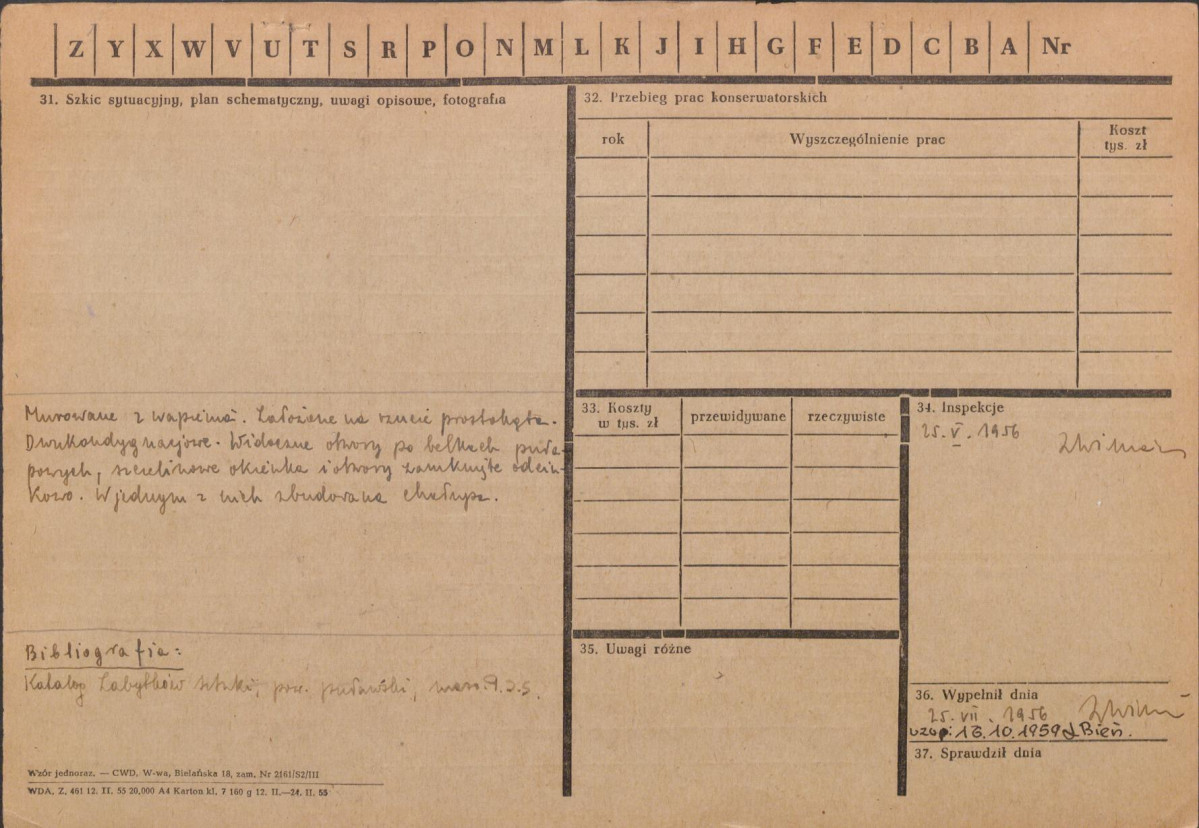 Z Y X W V U T S R P O N M L K J I H G F E D C B A Nr
31. Szkic sytuacyjny, plan schematyczny, uwagi opisowe, fotografia
Murowane z wapienia. Założone na rzucie prostokąta.
Dwukondygnacjowe. Widoczne otwory po belkach puła-
powych, szczelinowe okienka i otwory zamknięte odcin-
kowo. W jednym z nich zbudowana chałupa.
Bibliografia:
Katalog Zabytków sztuki, pow. puławski,
Wzór jednoraz. — CWD, W-wa, Bielańska 18, zam. Nr 2161/S2/III
WDA. Z. 461 12. II. 55 20.000 A4 Karton kl. 7 160 g 12. II.—24. II. 55
32. Przebieg prac konserwatorskich
rok Wyszczególnienie prac Koszt
tys. zł
33. Koszty
w tys. zł przewidywane rzeczywiste
34. Inspekcje
25. V. 1956
35. Uwagi różne
36. Wypełnił dnia
25. VII. 1956
uzup: 16.10.1959 J. Bień.
37. Sprawdził dnia